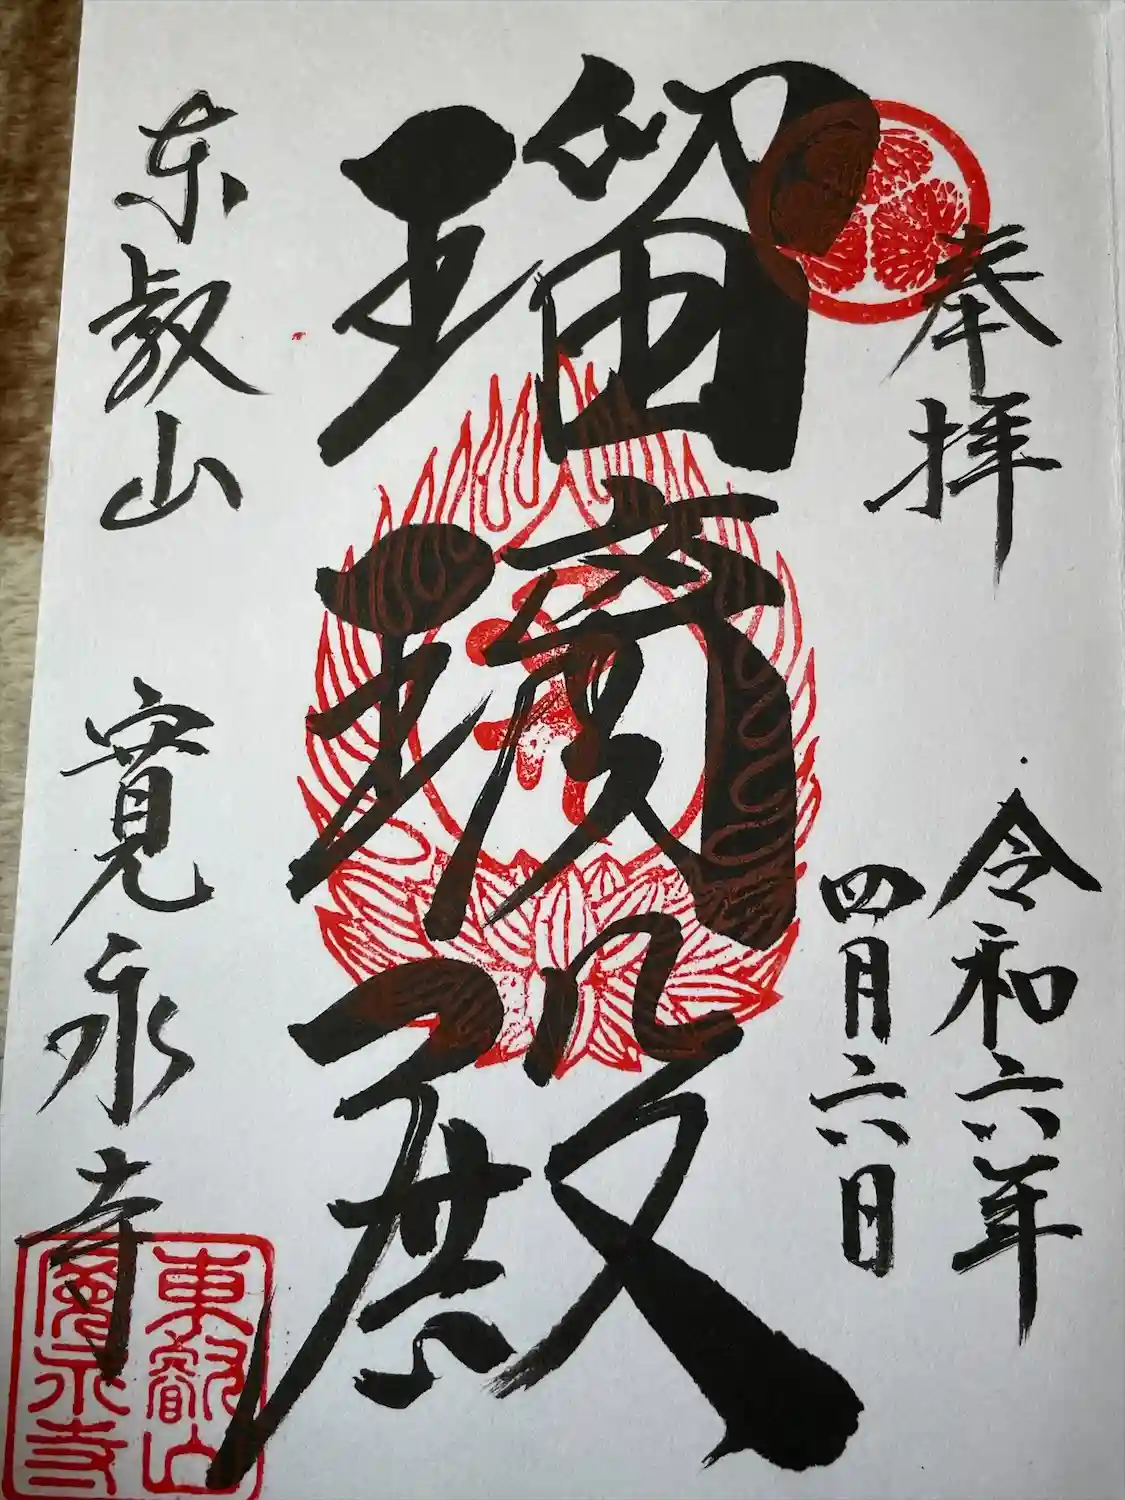 奉拝
令和六年
四月六日
瑠璃殿
東叡山 寛永寺
東叡山
寛永寺